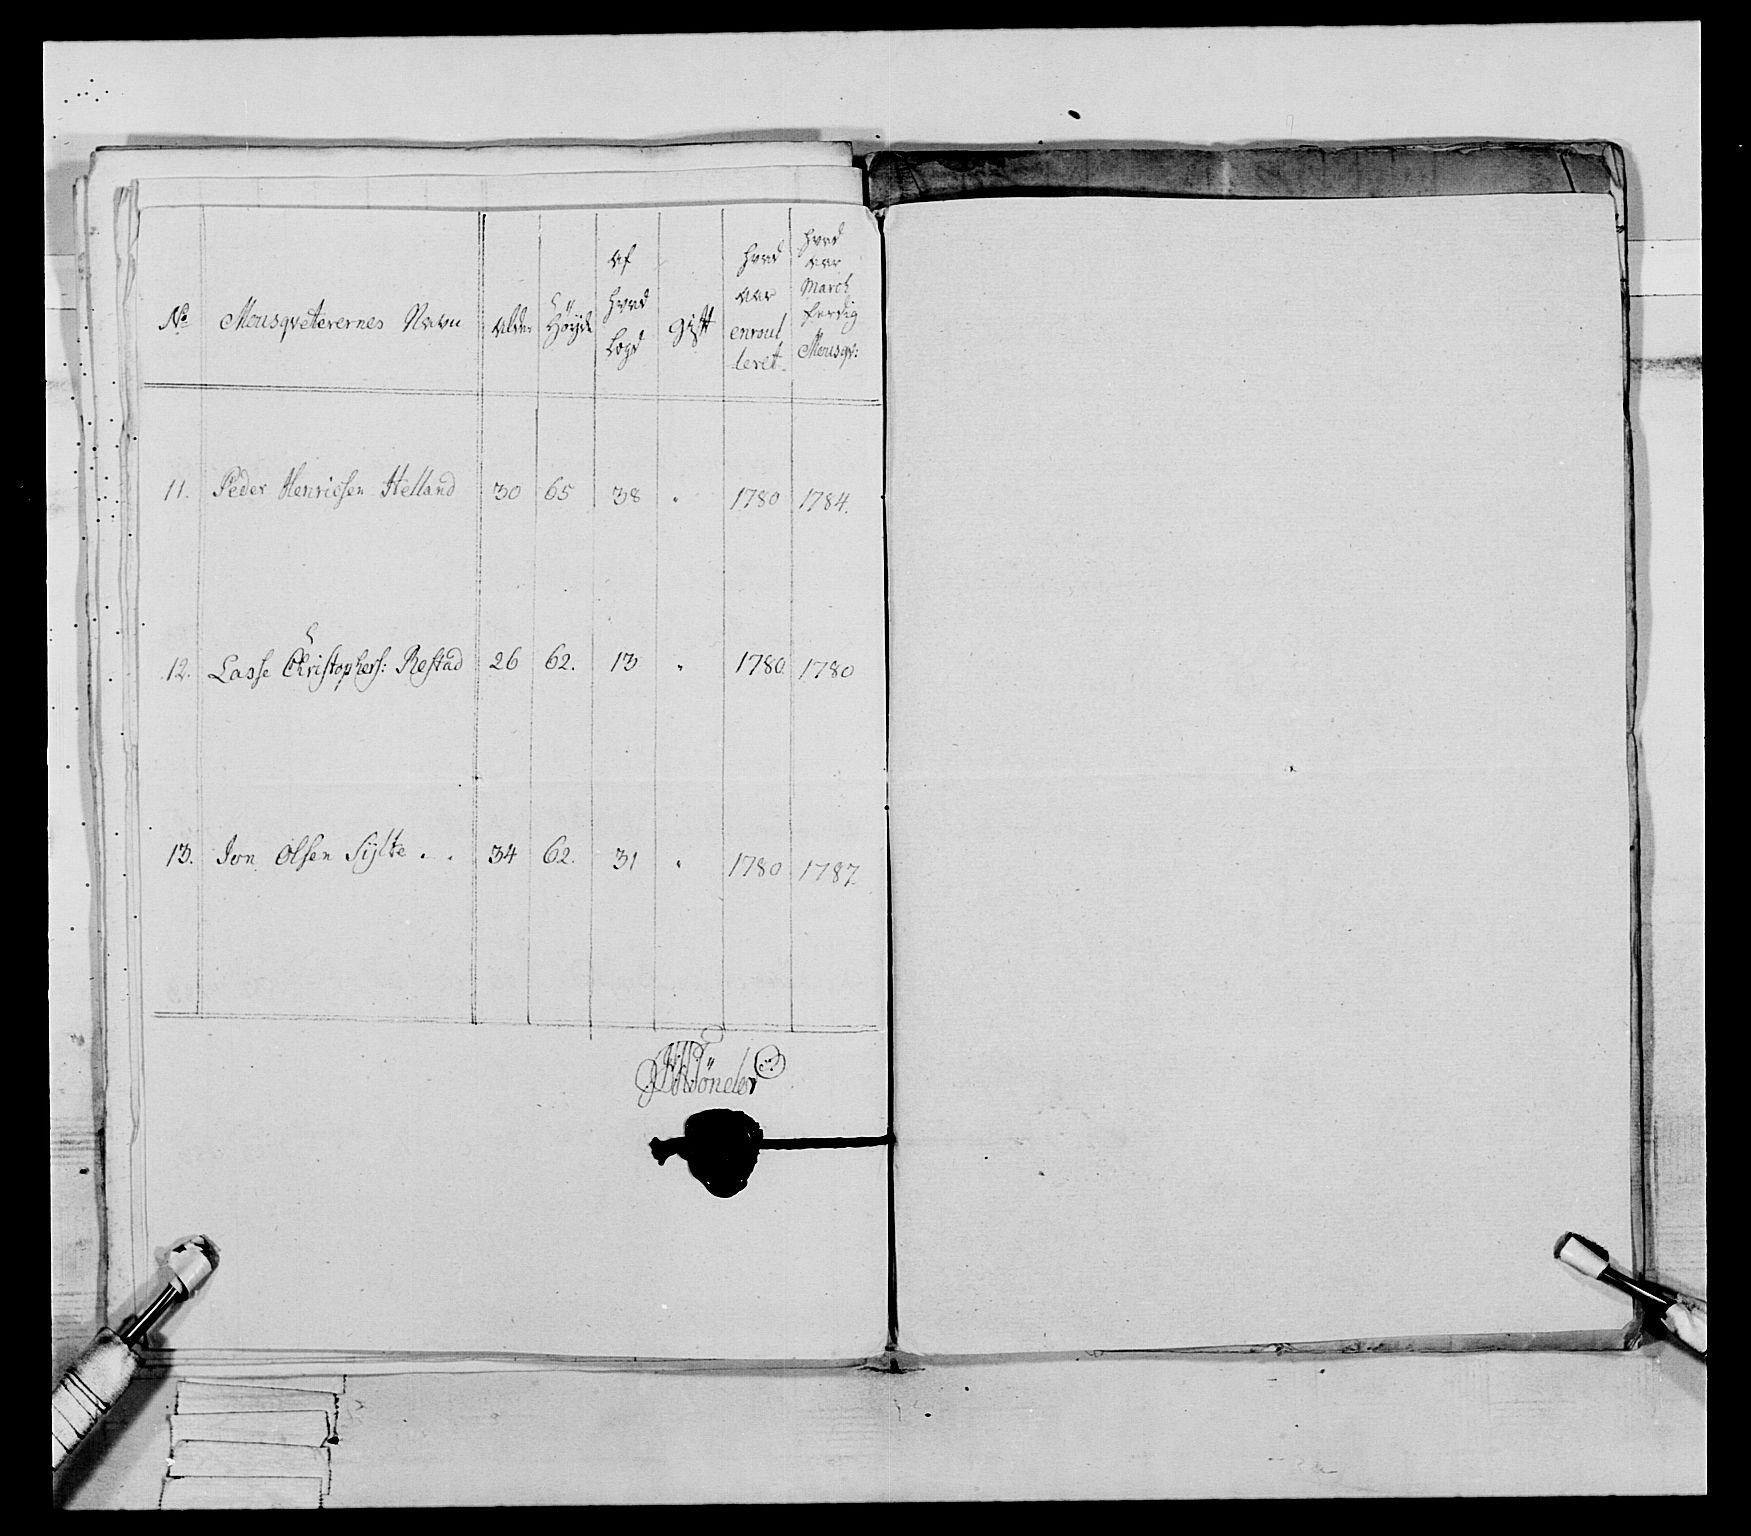 No Mousqveterernes Navn Alder Höyde Af hvad Legd gift hvad aar enroulleret. hvad aar March ferdig Mousqv:
11. Peder Henricsen Helland 30 65 38 " 1780 1784.
12. Lasse Christophers: Restad 26 62. 13 " 1780. 1780
13. Jon Olsen Sylte . . 34 62. 31 " 1780 1787.